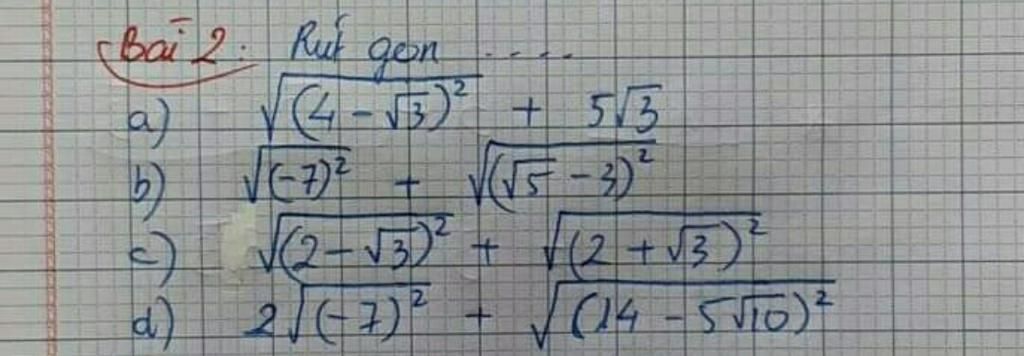 Bài 2: Rút gọn ....
a) √(4 - √3)² + 5√3
b) √(-7)² + √(√5 - 3)²
c) √(2 - √3)² + √(2 + √3)²
d) 2√(-7)² + √(14 - 5√10)²